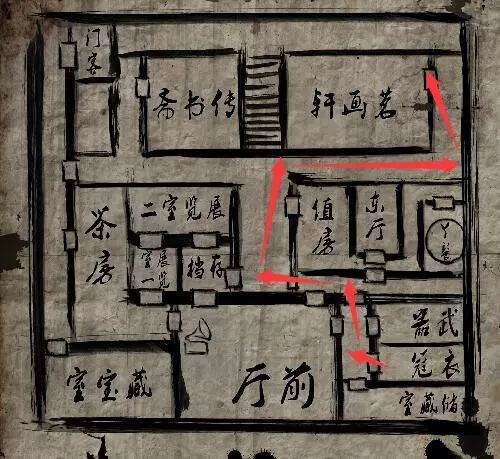 门客
茗画轩
传书斋
展览室二
茶房
值房
东厅
展览
室一
存档
武器
衣冠
储藏室
前厅
藏宝室